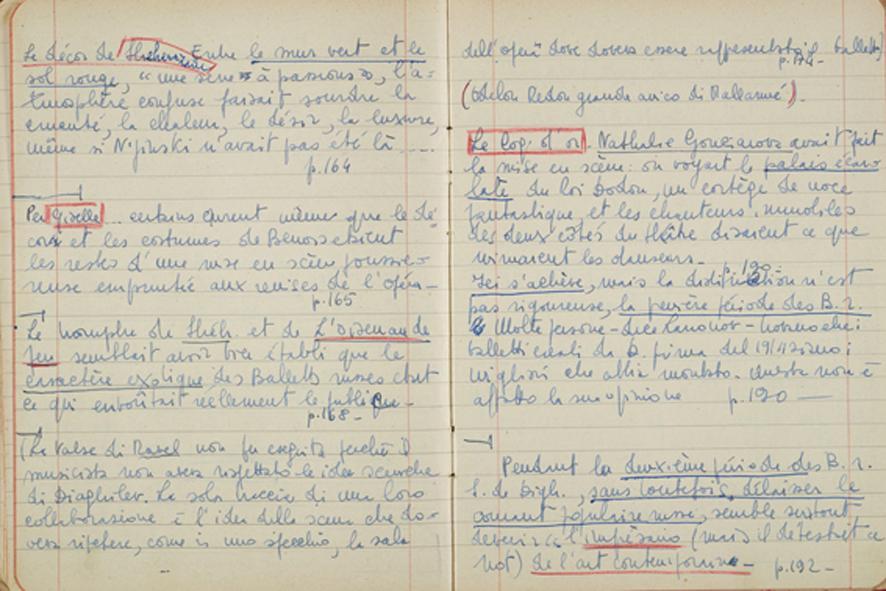 Le décor de Shéhérazade Entre le mur vert et le
sol rouge, "une serre à passions", l'a=
tmosphère confuse faisait sourdre la
cruauté, la chaleur, le désir, la luxure,
même si Nijinski n'avait pas été là ....
p.164
Pas Giselle ... certains crurent même que le dé=
cors et les costumes de Benois etaient
les restes d'une mise en scène poussié=
reuse empruntée aux remises de l'opéra_
p.165
Le triomphe de Shéh. et de L'Oiseau de
feu semblait avoir bien établi que le
caractère exotique des Ballets russes était
ce qui envoûtait réellement le public_
p.168_
(La Valse di Ravel non fu eseguita perché il
musicista non aveva rispettato le idee sceniche
di Diaghilev. La sola traccia di una loro
collaborazione è l'idea della scena che do=
veva ripetere, come in uno specchio, la sala
dell'opera dove doveva essere rappresentato il balletto)
p.174_
(Odilon Redon grande amico di Mallarmé).
Le Coq d'or. Nathalie Gontcharova avait fait
la mise en scène: on voyait le palais écar=
late du roi Dodon, un cortège de noce
fantastique, et les chanteurs immobiles
des deux côtés du théâtre disaient ce que
mimaient les danseurs._
p.190_
Ici s'achève, mais la distinction n'est
pas rigoureuse, la première période des B. r.
Molte persone - dice - hanno che i
balletti creati da D. prima del 1914 siano i
migliori che abbia montato. Questa non è
affatto la sua opinione p.190 _
Pendant la deuxième période des B. r.
S. de Diagh., sans toutefois délaisser le
courant populaire russe, semble surtout
devenir l'impresario (mais il détestait ce
mot) de l'art contemporain_ p.192_